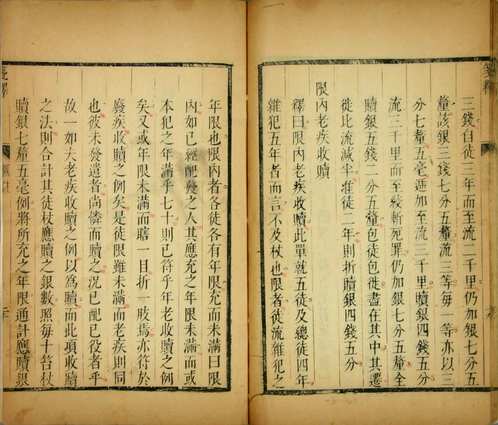 三錢自徒三年而至流二千里仍加銀七分五
釐該銀三錢七分五釐流三等每一等亦以三
分七釐五毫遞加至流二千里贖銀四錢五分
流三千里而至絞斬死罪仍加銀七分五釐全
贖銀五錢二分五釐包徒包徙盡在其中其遷
徙比流減半准徒二年則折贖銀四錢五分
限內老疾收贖
釋曰限內老疾收贖此單就五徒及總徒四年
雜犯五年者而言不及杖也限者徒流雜犯之
年限也限內者各徒各有年限充而未滿曰限
內如已經配發之人其應充之年限未滿而或
本犯之年滿乎七十則已符乎年老收贖之例
矣又或年限未滿而瞎一目折一肢焉亦符於
廢疾收贖之例矣是徒限雖未滿而老疾則同
也彼未發遣者尚憐而贖之況已配已役者乎
故一如夫老疾收贖之例以爲贖而此項收贖
之法則合計其徒杖應贖之銀數照每十笞杖
贖銀七釐五毫例將所充之年限通計應贖銀